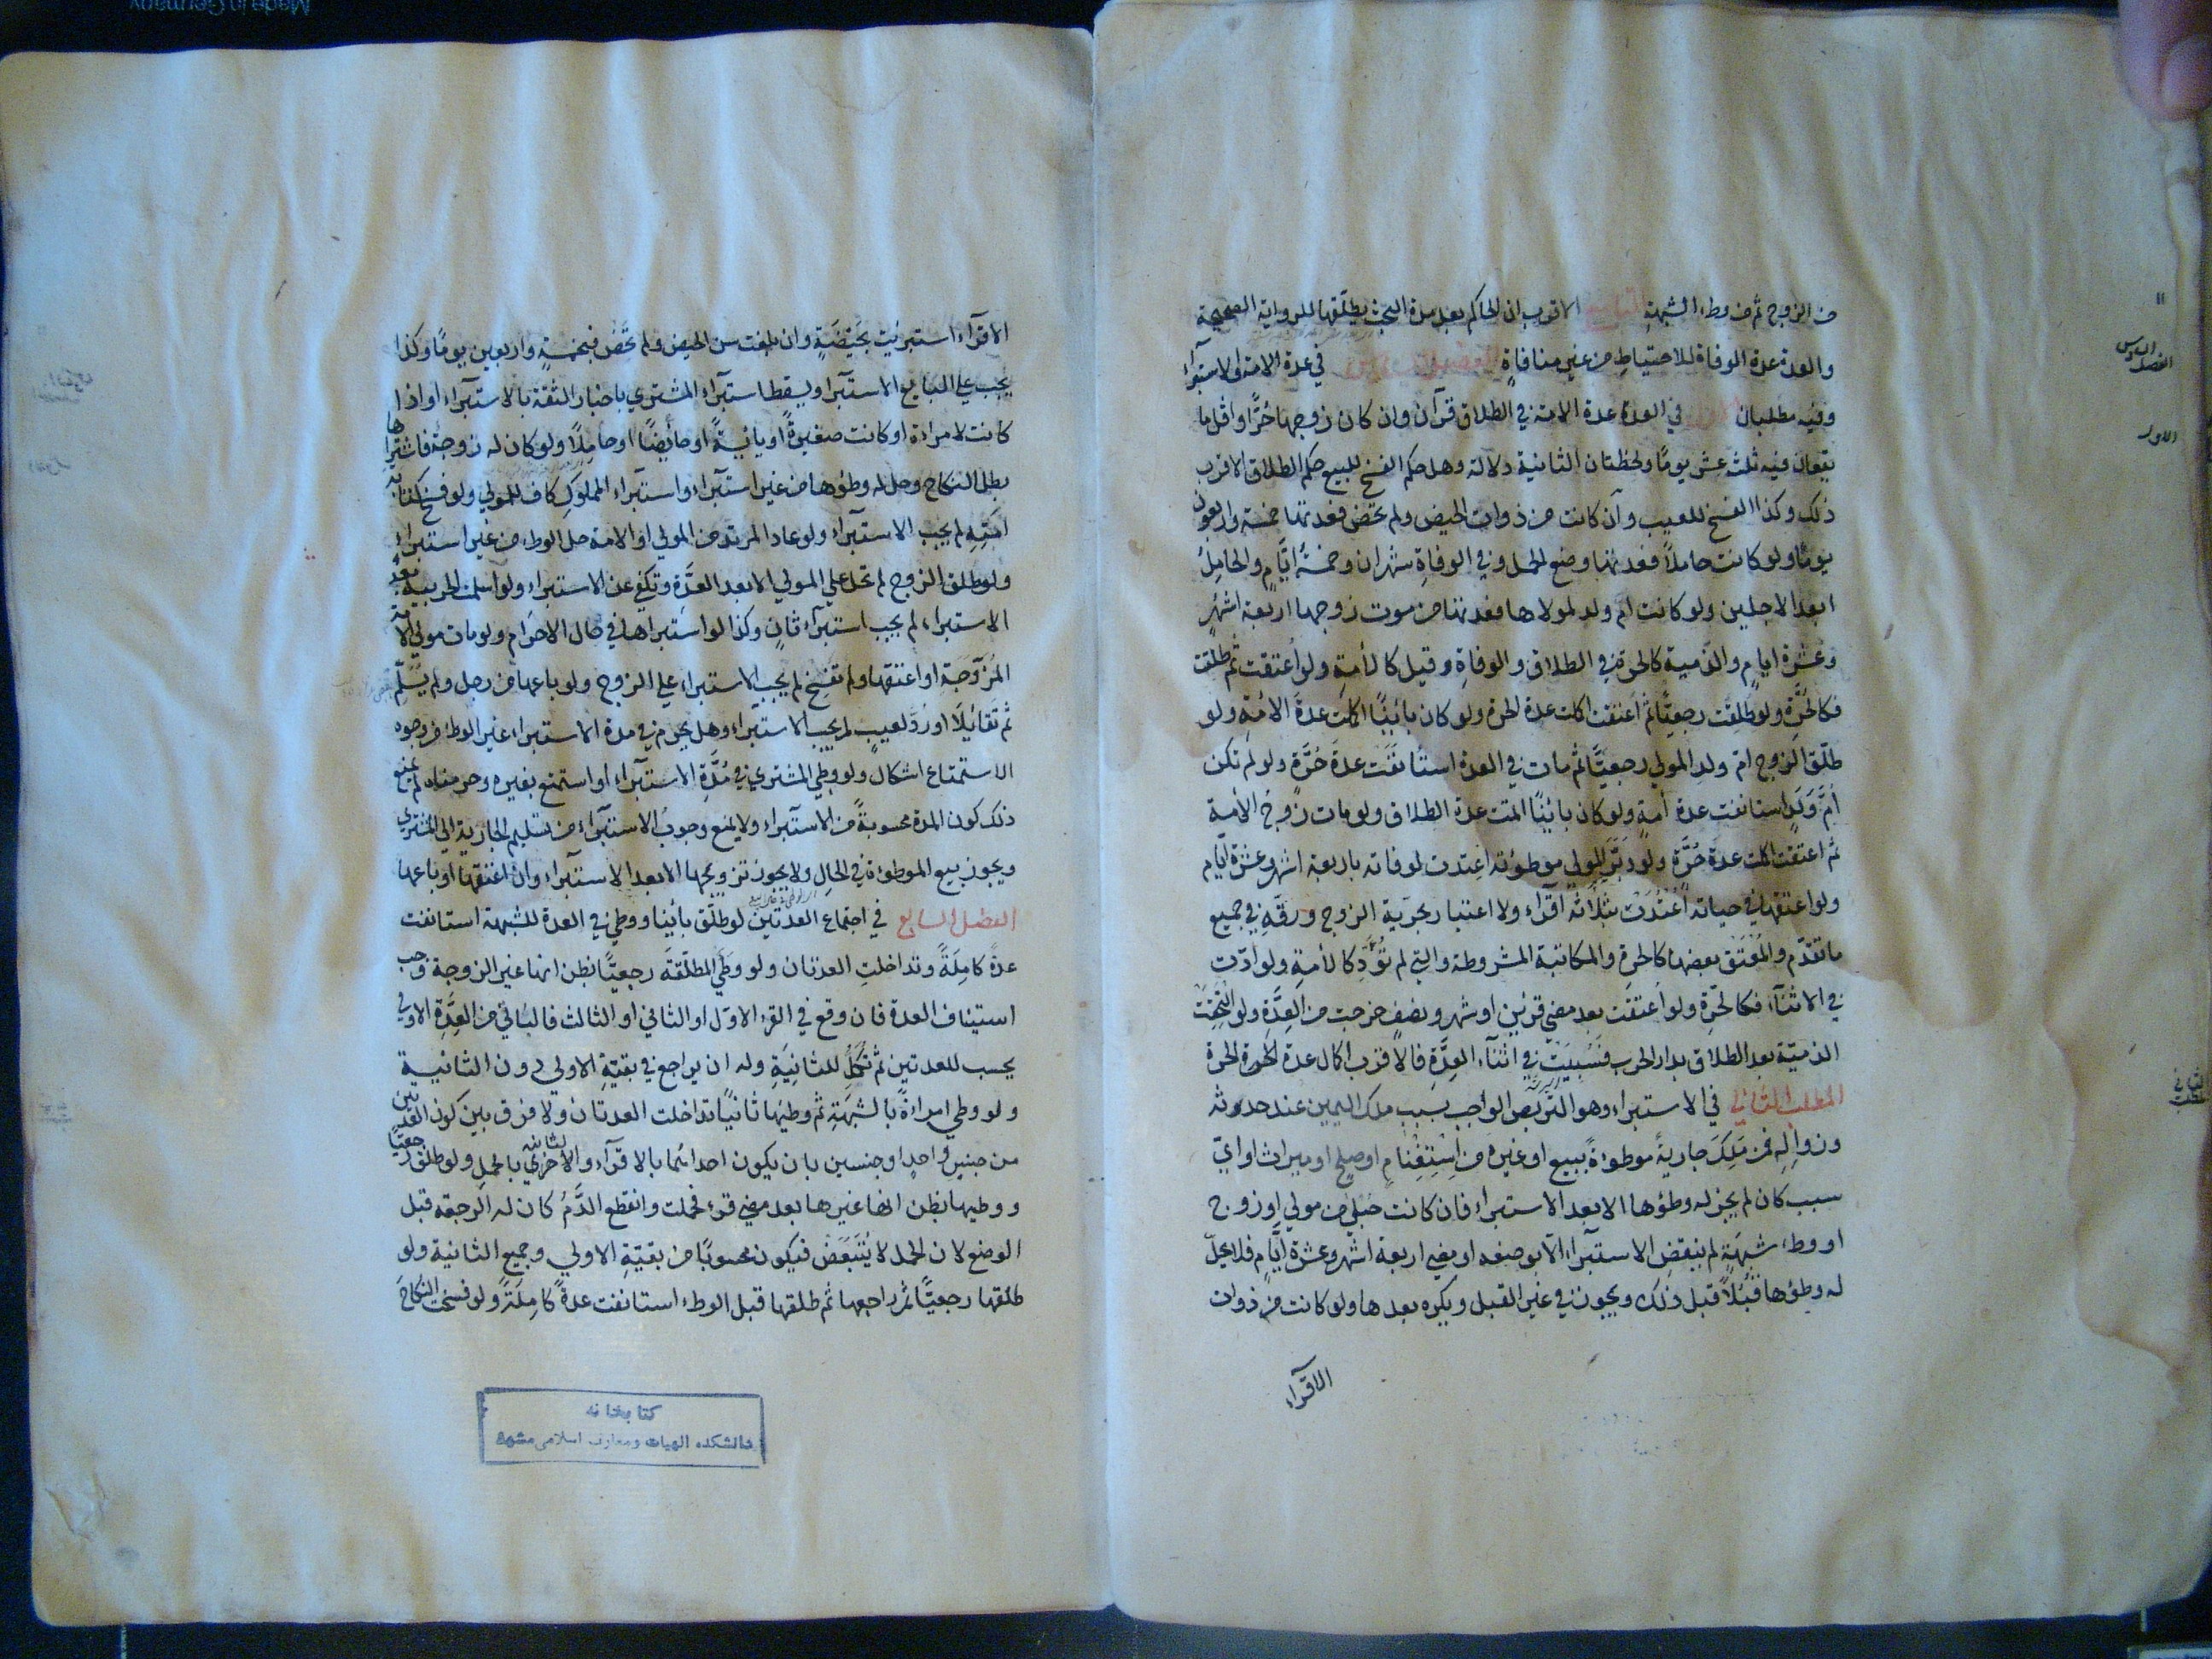 من الزوج ثم من وطء الشبهة التاسع الاقرب ان الحاكم بعد مدة البحث يطلّقها للرواية الصحيحة
والعدة عدة الوفاة للاحتياط من غير منافاةٍ الفصل السادس في عدة الامة والاستبرآء
وفيه مطلبان الاول في العدة عدة الامة في الطلاق قرآن وان كان زوجها حُرًّا واقل ما
يقعان فيه ثلثة عشر يومًا ولحظتان الثانية دلالة وهل حكم الفسخ للبيع حكم الطلاق الاقرب
ذلك وكذا الفسخ للعيب وان كانت من ذوات الحيض ولم تحض فعدتها خمسة واربعون
يومًا ولو كانت حاملًا فعدتها وضع الحمل وفي الوفاةِ شهران وخمسةُ ايّامٍ والحامِلُ
ابعد الاجلين ولو كانت ام ولد لمولاها فعدتها من موت زوجها اربعة اشهُرٍ
وعشرة ايامٍ والذمية كالحرة في الطلاق والوفاةِ وقيل كالأمةِ ولو اُعتقت ثم طلقت
فكالحُرَّةِ ولو طُلِقَت رجعيًّا ثم اُعتقت اكلت عدة الحرة ولو كان بائنًا اكلت عدةَ الامَةِ ولو
طلّق الزوج ام ولدِ المولي رجعيًّا ثم مات في العدة استأنفَت عدة حُرَّة ولو لم تكن
اُمَّ وَلَدٍ استانفت عدة أمةٍ ولو كان بائنًا اتمت عدة الطلاق ولو مات زوجُ الأمة
ثم اعتقت اكلت عدة حُرَّة ولو دبّر المولي موطؤته اعتدت لوفاته باربعة اشهر وعشرة ايام
ولو اعتقها في حياته اُعْتُدَّتْ بثلاثة اقرآء ولا اعتبار بحرية الزوج ورقّهِ في جميع
ما تقدّم والمُعْتَقُ بعضها كالحرة والمكاتبة المشروطة والتي لم تُؤَدِّ كالأمةِ ولو ادّت
في الاثنآء فكالحرّة ولو اُعتقت بعد مضي قرئين او شهر ونصف خرجت من العِدَّةِ ولو التَحَقت
الذميّة بعد الطلاق بدار الحرب فَسُبِيَتْ في اثنآء العِدَّةِ فالاقرب اكمال عدة الحرة
المطلب الثاني في الاستبراء وهو التَّربُّص الواجب بسبب ملك اليمين عند حدوثه
وزوالِهِ فمن مَلِكَ جاريةً موطوءةً ببيع او غيره من اِسْتِغْنامٍ او صلحٍ او ميراث او ايّ
سبب كان لم يجز له وطؤها الا بعد الاستبراء فان كانت حبلي من مولي او زوج
او وطء شبهَةٍ لم ينقضِ الاستبرآء الّا بوضعه او بمضي اربعة اشهر وعشرة ايّامٍ فلا يحلّ
له وطؤها قُبُلًا قبل ذلك ويجوز في غير القبل ويكره بعدها ولو كانت من ذوات
الاقرآء
الفصل السادس
الاول
الثاني
المطلب
الاقرآء استبرئت بحَيْضَةٍ وان بلغت سن الحيض ولم تَحِض فبخمسةٍ واربعين يومًا وكذا
يجب علي البايع الاستبرآء ويسقط استبرآء المشتري باخبار الثقة بالاستبرآء او اذا
كانت لامراءة او كانت صغيرةً او يائسةً او حائضًا او حامِلًا ولو كان له زوجة فاشتراها
بطل النكاح وحل له وطؤها من غير استبرآء واستبراء المملوكِ كاف للمولي ولو فسخ كتابة
اَمَتِهِ لم يجب الاستبرآء ولو عاد المرتد من المولي او الامة حل الوطء من غير استبراءٍ
ولو طلق الزوج لم تحل علي المولي الا بعد العدَّةِ وتكفي عن الاستبراء ولو اسلمت الحربية بعد
الاستبراء لم يجب استبرآء ثانٍ وكذا لو استبراها في حال الاحرامِ ولو مات مولي الامة
المُزَوَّجَة او اعتقها ولم تفسخ لم يجب الاستبراء علي الزوج ولو باعها من رجل ولم يُسَلِّم
ثم تَقائيلَا او رُدَّ لعيبٍ لم يجب الاستبرآء وهل يحرم في مدة الاستبراء غير الوطء من وجوه
الاستمتاع اشكال ولو وطي المشتري في مُدَّةِ الاستبرآء او استمتع بغيره وحرمناه لم يمنع
ذلك كون المدة محسوبةً من الاستبراء ولا يمنع وجوبُ الاستبرآء من تسليم الجارية الي المشتري
ويجوز بيع الموطوءة في الحالِ ولا يجوز تزويجها الا بعد الاستبراء وان اعتقها او باعها
الفصل السابع في اجتماع العدتين لو طلّق بائنا ووطئ في العدة للشبهة استانفت
عدةً كامِلَةً وتداخلتِ العدتان ولو وطَئ المطلّقة رجعيًّا بظن انها غير الزوجة وجب
استيناف العدة فان وقع في القرء الاوّل او الثاني او الثالث فالباقي من العِدَّةِ الاولي
يحسب للعدتين ثم تُكمِّلُ للثانِيَةِ وله ان يراجع في بقيّةِ الاولي دون الثانية
ولو وطئ امراءةً بالشبهَةِ ثم وطيها ثانيًا تداخلت العدتان ولا فرق بين كون العدتين
من جنسٍ واحدٍ او جنسين بان يكون احداهما بالاقرآء والاخري بالحمل ولو طلق رجعيًّا
ووطيها بظن انها غيرها بعد مضي قرء فحملت وانقطع الدَّمُ كان له الرجعة قبل
الوضع لان الحمل لا يُتَبَعَّض فيكون محسوبًا من بقيّةِ الاولي وجميع الثانية ولو
طلقها رجعيًّا ثم راجعها ثم طلقها قبل الوطء استانفت عدةً كامِلَةً ولو فسخت النكاحَ
كتابخانه
دانشكده الهيات ومعارف اسلامى مشهد
Made in Germany